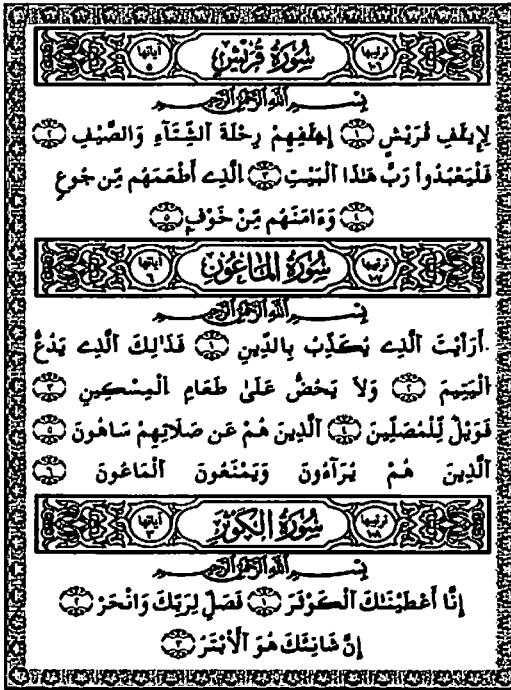 ترتيبها ١٠٦ سُورَةُ قُرَيْشٍ آياتها ٥
بِسْمِ اللَّهِ الرَّحْمَٰنِ الرَّحِيمِ
لِإِيلَٰفِ قُرَيْشٍ ١ إِۦلَٰفِهِمْ رِحْلَةَ اَلشِّتَآءِ وَالصَّيْفِ ٢
فَلْيَعْبُدُواْ رَبَّ هَٰذَا اَلْبَيْتِ ٣ اَلَّذِے أَطْعَمَهُم مِّن جُوعٍ
٤ وَءَامَنَهُم مِّنْ خَوْفٍۭ ٥
ترتيبها ١٠٧ سُورَةُ الْمَاعُونِ آياتها ٦
بِسْمِ اللَّهِ الرَّحْمَٰنِ الرَّحِيمِ
أَرَٰيْتَ اَلَّذِے يُكَذِّبُ بِالدِّينِ ١ فَذَٰلِكَ اَلَّذِے يَدُعُّ
اُلْيَتِيمَ ٢ وَلَا يَحُضُّ عَلَىٰ طَعَامِ اِلْمِسْكِينِ ٣
فَوَيْلٌ لِّلْمُصَلِّينَ ٤ اَلَّذِينَ هُمْ عَن صَلَاتِهِمْ سَاهُونَ ٥
اَلَّذِينَ هُمْ يُرَآءُونَ وَيَمْنَعُونَ اَلْمَاعُونَ ٦
ترتيبها ١٠٨ سُورَةُ الْكَوْثَرِ آياتها ٣
بِسْمِ اللَّهِ الرَّحْمَٰنِ الرَّحِيمِ
إِنَّا أَعْطَيْنَٰكَ اَلْكَوْثَرَ ١ فَصَلِّ لِرَبِّكَ وَانْحَرْ ٢
إِنَّ شَانِئَكَ هُوَ اَلْأَبْتَرُ ٣